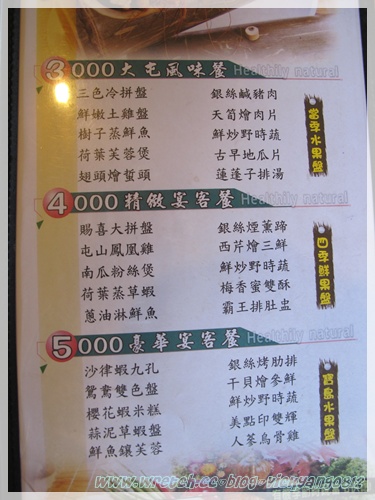 3000 大屯風味餐 Healthily natural
三色冷拼盤
鮮嫩土雞盤
樹子蒸鮮魚
荷葉芙蓉煲
翅頭燴蜇頭
銀絲鹹豬肉
天筍燴肉片
鮮炒野時蔬
古早地瓜片
蓮蓬子排湯
當季水果盤
4000 精緻宴客餐 Healthily natural
賜喜大拼盤
屯山鳳凰雞
南瓜粉絲煲
荷葉蒸草蝦
蔥油淋鮮魚
銀絲煙薰蹄
西芹燴三鮮
鮮炒野時蔬
梅香蜜雙酥
霸王排肚盅
四季鮮果盤
5000 豪華宴客餐 Healthily natural
沙律蝦九孔
鴛鴦雙色盤
櫻花蝦米糕
蒜泥草蝦盤
鮮魚鑲芙蓉
銀絲烤肋排
干貝燴參鮮
鮮炒野時蔬
美點印雙輝
人蔘烏骨雞
寶島水果盤